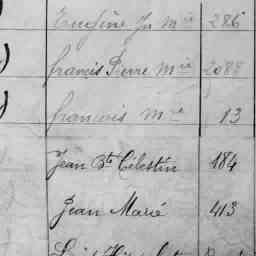 Eugène Jn Mie 286
Francis Pierre Mie 2088
François Mie 13
Jean Bte Célestin 184
Jean Marie 413